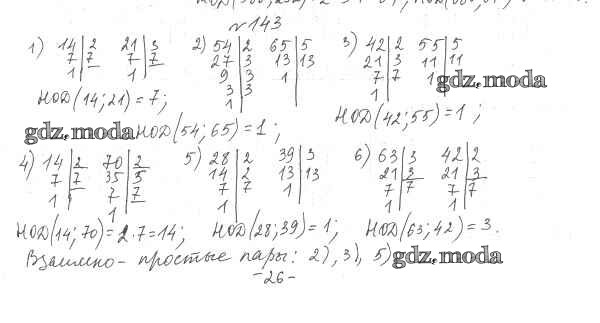 № 143
1) 14 | 2 21 | 3 2) 54 | 2 65 | 5 3) 42 | 2 55 | 5
7 | 7 7 | 7 27 | 3 13 | 13 21 | 3 11 | 11
1 1 9 | 3 1 7 | 7 1
3 | 3 1
1
gdz.moda
НОД(14;21)=7;
НОД(42;55)=1;
gdz.moda НОД(54;65)=1;
4) 14 | 2 70 | 2 5) 28 | 2 39 | 3 6) 63 | 3 42 | 2
7 | 7 35 | 5 14 | 2 13 | 13 21 | 3 21 | 3
1 7 | 7 7 | 7 1 7 | 7 7 | 7
1 1 1 1
НОД(14;70)=2·7=14; НОД(28;39)=1; НОД(63;42)=3.
Взаимно-простые пары: 2), 3), 5) gdz.moda
-26-